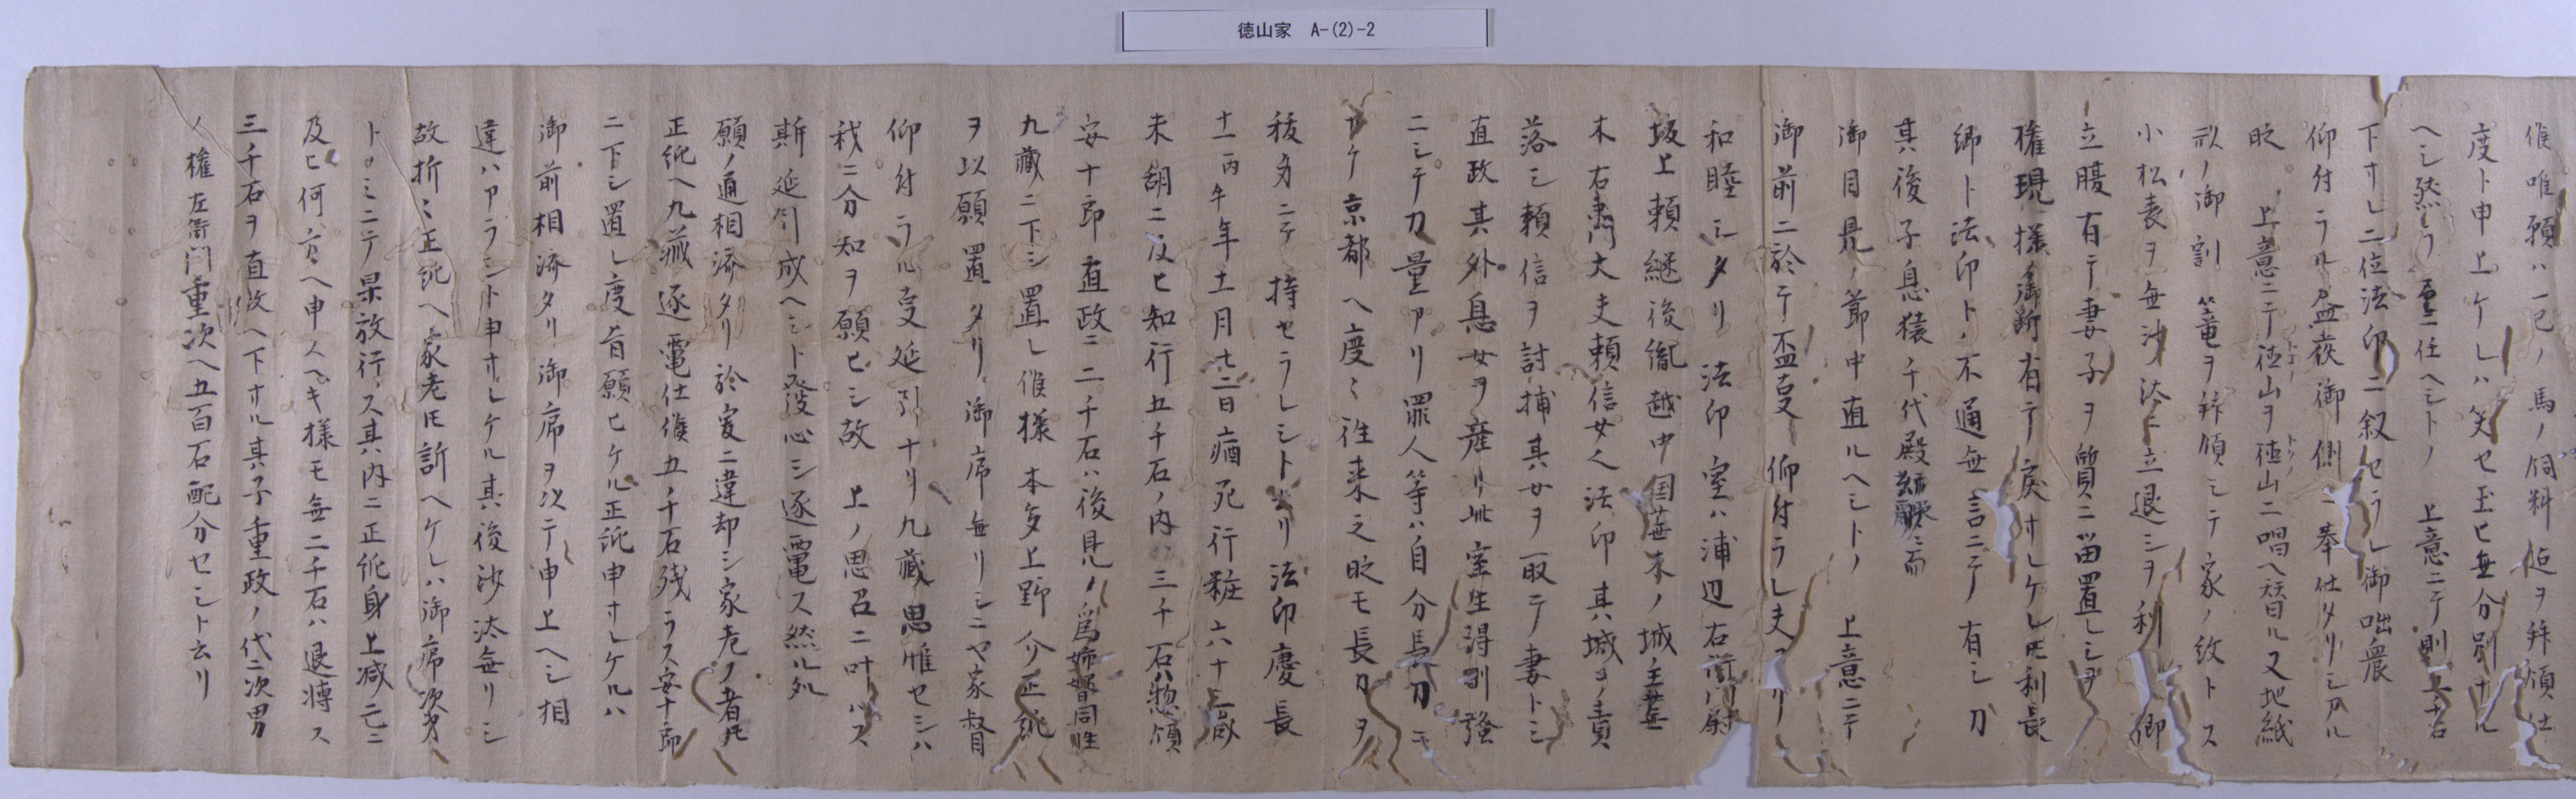 徳山家 A-(2)-2
候唯願ハ一疋ノ馬ノ飼料 ヲ拝領仕
度ト申上ケレハ笑セ玉ヒ無分別ナル
ヘシ然ラ 任ヘシトノ 上意ニテ則
下サレ二位法印ニ叙セラレ御咄衆
仰付ラル昼夜御側ニ奉仕タリシ
時 上意ニテ徳山ヲ徳山ニ唱ヘ替ル又地紙
ノ御割 竜ヲ拝領シテ家ノ紋トス
小松表ヲ無沙汰ニ立退シヲ利 卿
立腹有テ妻子ヲ質ニ留置レシヲ
権現様御 有テ戻サレケレ共利長
卿ト法印トハ不通無言ニテ有シ刀
其後子息猿千代殿 而
御目見ノ節中直ルヘシトノ 上意ニテ
御前ニ於テ盃事 仰付ラレ夫ヨリ
和睦シタリ 法印室ハ浦辺右衛門尉
坂上頼継後胤越中国 木ノ城主
木右衛門大夫頼信女也法印其城ヲ責
落シ頼信ヲ討捕其女ヲ取テ妻トシ
直政其外息女ヲ産リ此室生得剛強
ニシテ力量アリ罪人等ハ自分長刀
ケ京都ヘ度々往来之時モ長刀ヲ
ニテ 持セラレシト云リ法印慶長
十一丙午年十一月廿二日病死行粧六十三歳
未 ニ及ヒ知行五千石ノ内 三千石ハ惣領
安十郎直政ニ二千石ハ後見ノ為 同性
九藏ニ下シ置レ候様本多上野介正純
ヲ以願置タリ御席無リシニヤ家督
仰付ラル事延引ナリ九藏思惟セシハ
我ニ分知ヲ願ヒシ故 上ノ思召ニ叶ハス
斯延引成ヘシト發心シ逐電ス然ル処
願ノ通相済タリ於爰ニ違却シ家老ノ者共
正純ヘ九藏逐電仕候五千石残ラス安十郎
ニ下シ置レ度旨願ヒケル正純申サレケルハ
御前相済タリ御席ヲ以テ申上ヘシ相
違ハアラシト申サレケル其後沙汰無リシ
故折々正純ヘ家老共訴ヘケレハ御席次第
トノミニテ果放行ス其内ニ正純身上滅亡ニ
及ヒ何方ヘ申入ヘキ様モ無二千石ハ退転ス
三千石ヲ直政ヘ下サル其子重政ノ代二次男
権左衛門重次ヘ五百石配分セシト云リ